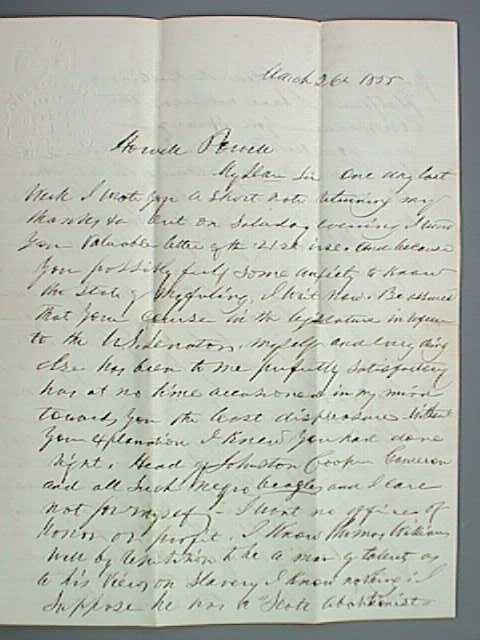 March 26th 1855
Howell Powell
My Dear Sir One day last
Week I wrote you a short note returning my
thanks &c But on Saturday evening I
your valuable letter of the 21st inst. And because
you possibly feel some anxiety to know
the state of my feeling, I write now. Be assured
that your course in the legislature in
to the U.S. Senator, myself and every thing
else has been to me perfectly satisfactory
has at no time occasioned in my mind
towards you the least displeasure. Without
your explanation I knew you had done
right. Head of Johnston Cooper Cameron
and all such negro beagles and I care
not for myself - I want no office of
Honor or profit. I know Thomas Williams
well by reputation to be a man of talent as
to his views on slavery I know nothing. I
suppose he was a "Scott abolitionist"